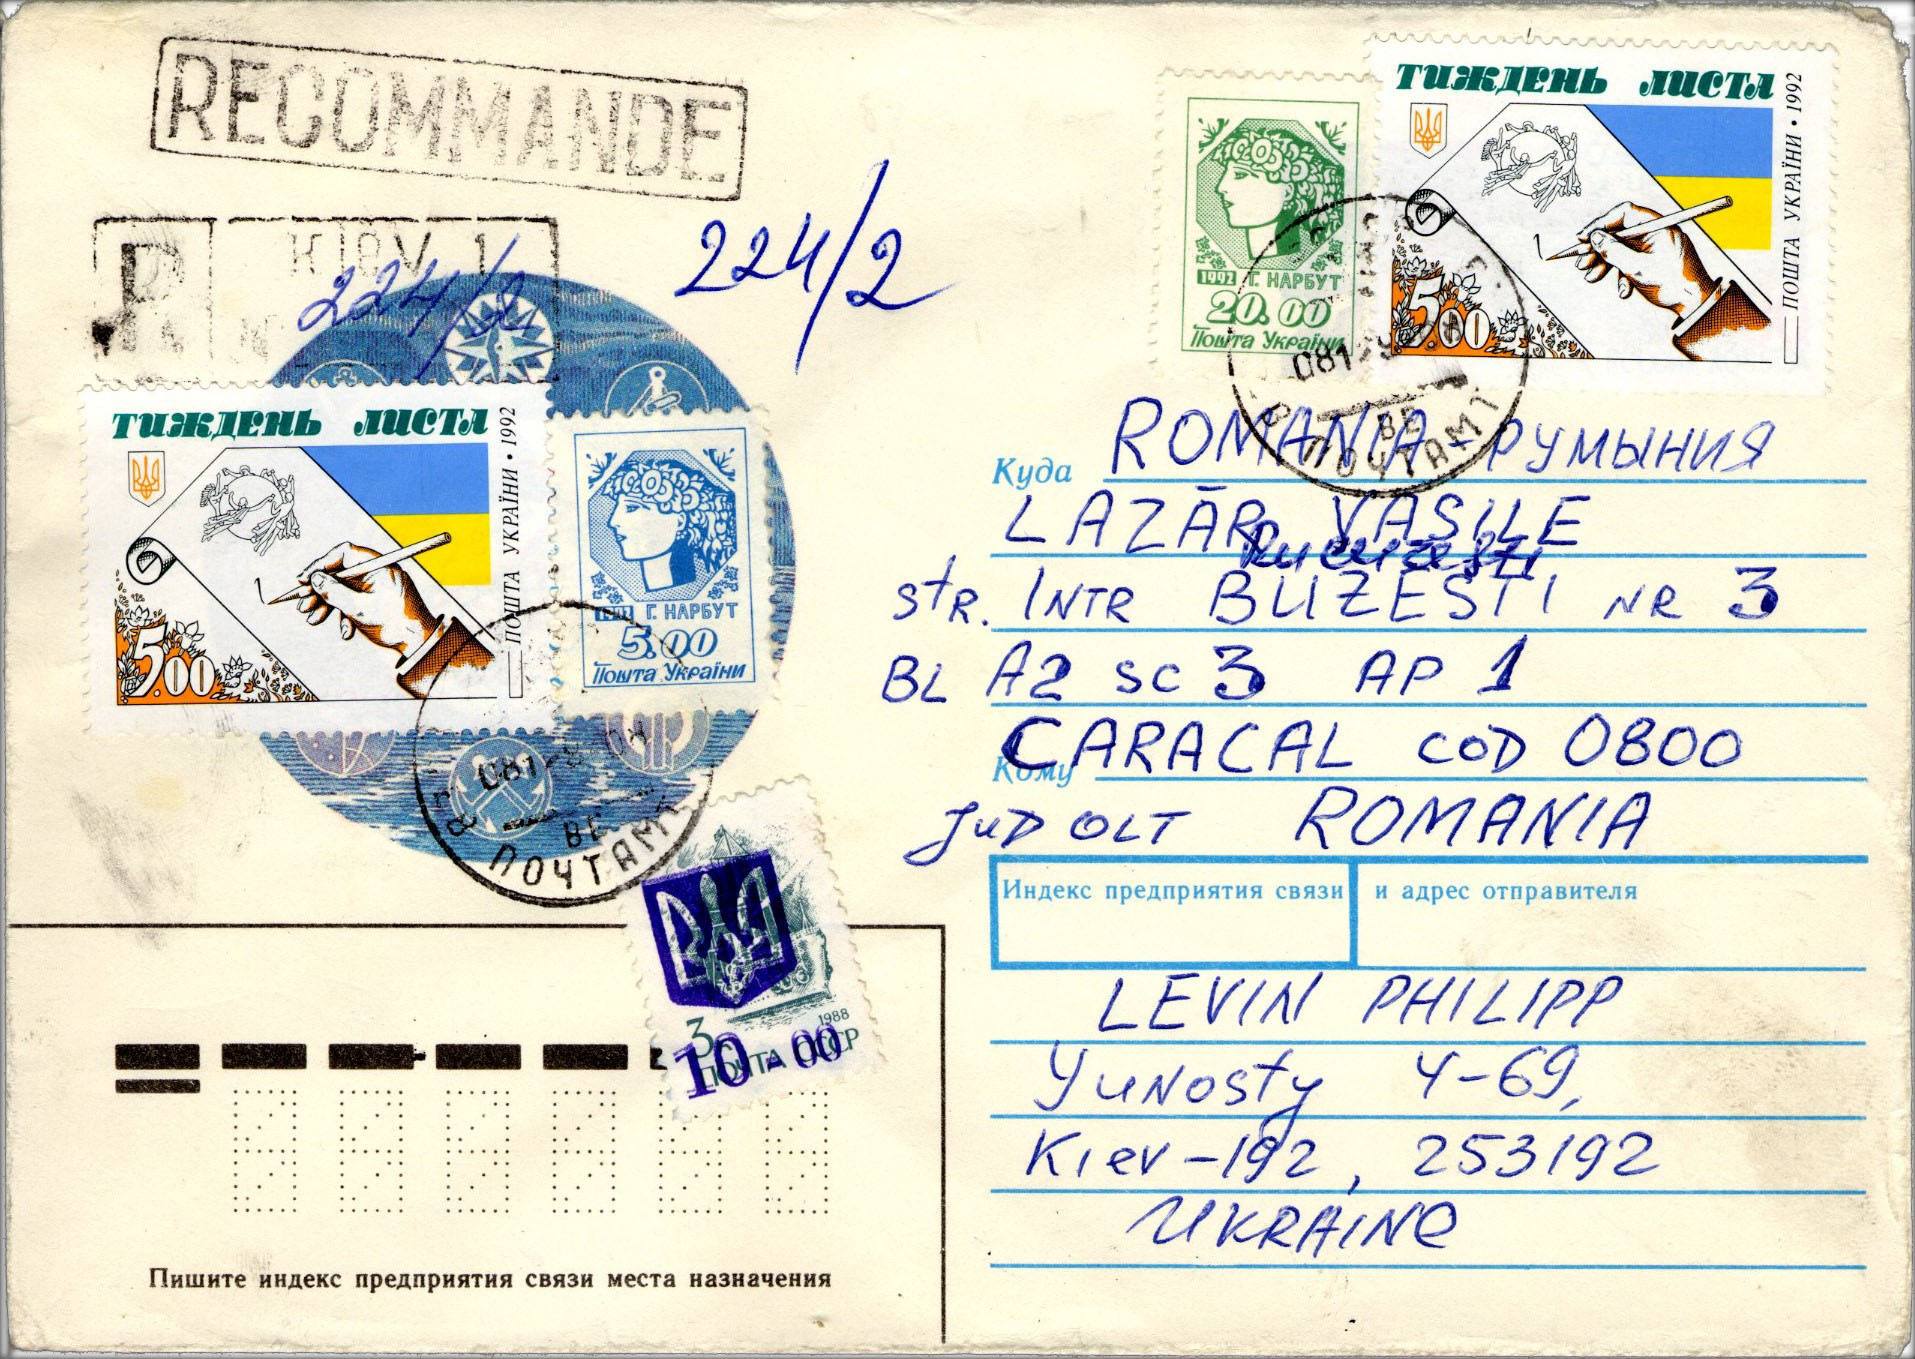 RECOMMANDE
R
Kiev 1
N 224/2
224/2
1992 Г. НАРБУТ
20.00
Пошта України
ТИЖДЕНЬ ЛИСТА
ПОШТА УКРАЇНИ • 1992
5.00
ТИЖДЕНЬ ЛИСТА
ПОШТА УКРАЇНИ • 1992
5.00
1992 Г. НАРБУТ
5.00
Пошта України
ПОЧТАМТ
ПОЧТАМТ
1988
3
ПОЧТА СССР
10-00
Куда
ROMANIA - РУМЫНИЯ
LAZĂR VASILE
STR. INTR BUZESTI NR 3
BL A2 SC 3 AP 1
CARACAL COD 0800
Кому
JUD OLT ROMANIA
Индекс предприятия связи и адрес отправителя
LEVIN PHILIPP
Yunosty 4-69,
Kiev-192, 253192
UKRAINE
Пишите индекс предприятия связи места назначения